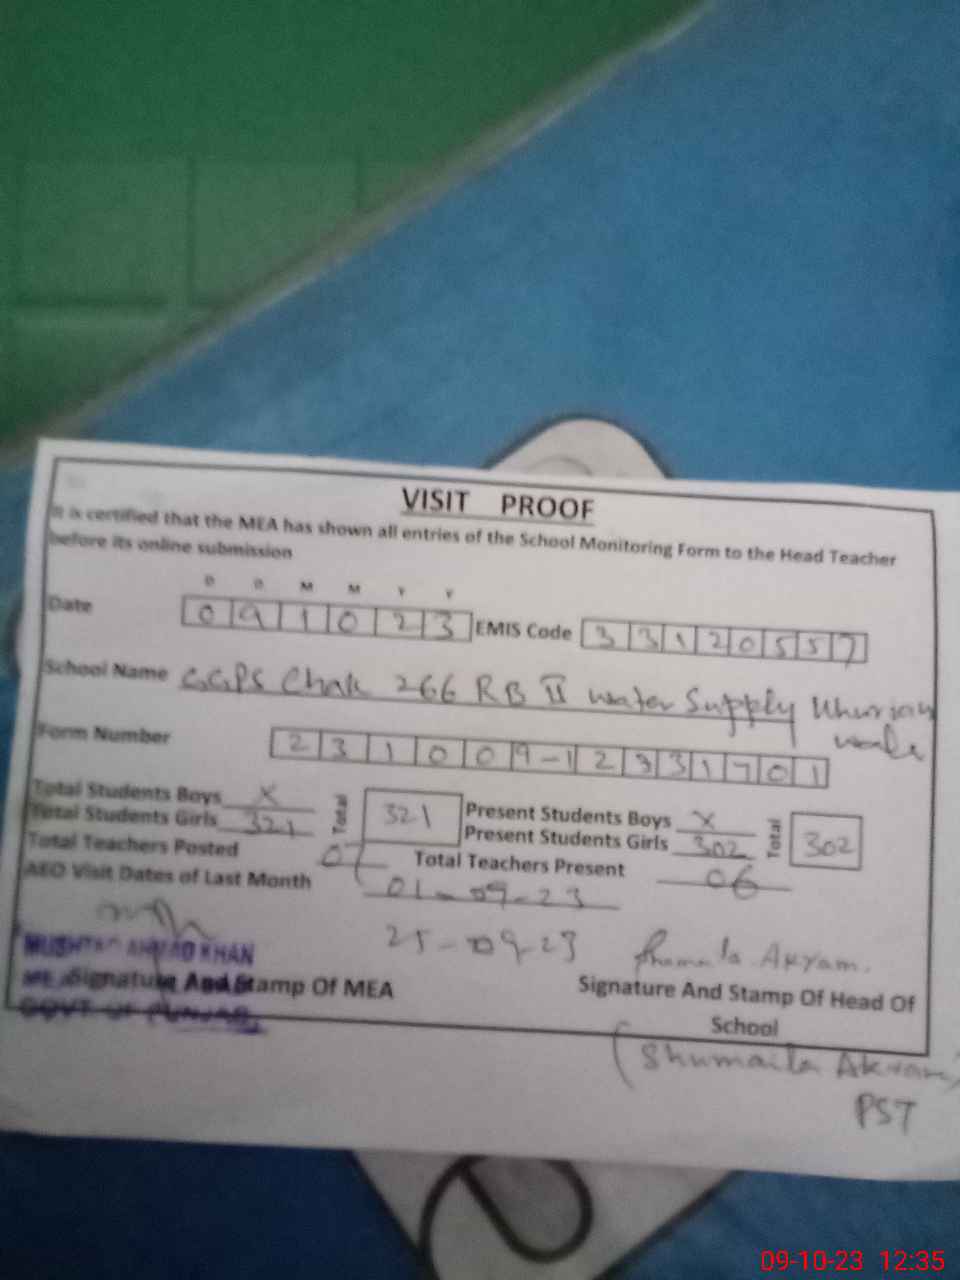 VISIT PROOF
It is certified that the MEA has shown all entries of the School Monitoring Form to the Head Teacher
before its online submission
D D M M Y Y
Date 0 9 1 0 2 3 EMIS Code 3 3 1 2 0 5 5 7
School Name GGPS Chak 266 RB II water Supply
wale
Form Number 2 3 1 0 0 9 - 1 2 3 3 1 7 0 1
Total Students Boys X Total 321 Present Students Boys X Total 302
Total Students Girls 321 Present Students Girls 302
Total Teachers Posted Total Teachers Present 06
AEO Visit Dates of Last Month 01-09-23
25-09-23
MUSHTAQ AHMAD KHAN
Signature And Stamp Of MEA Signature And Stamp Of Head Of
School
GOVT OF PUNJAB
(Shumaila Akram)
PST
09-10-23 12:35